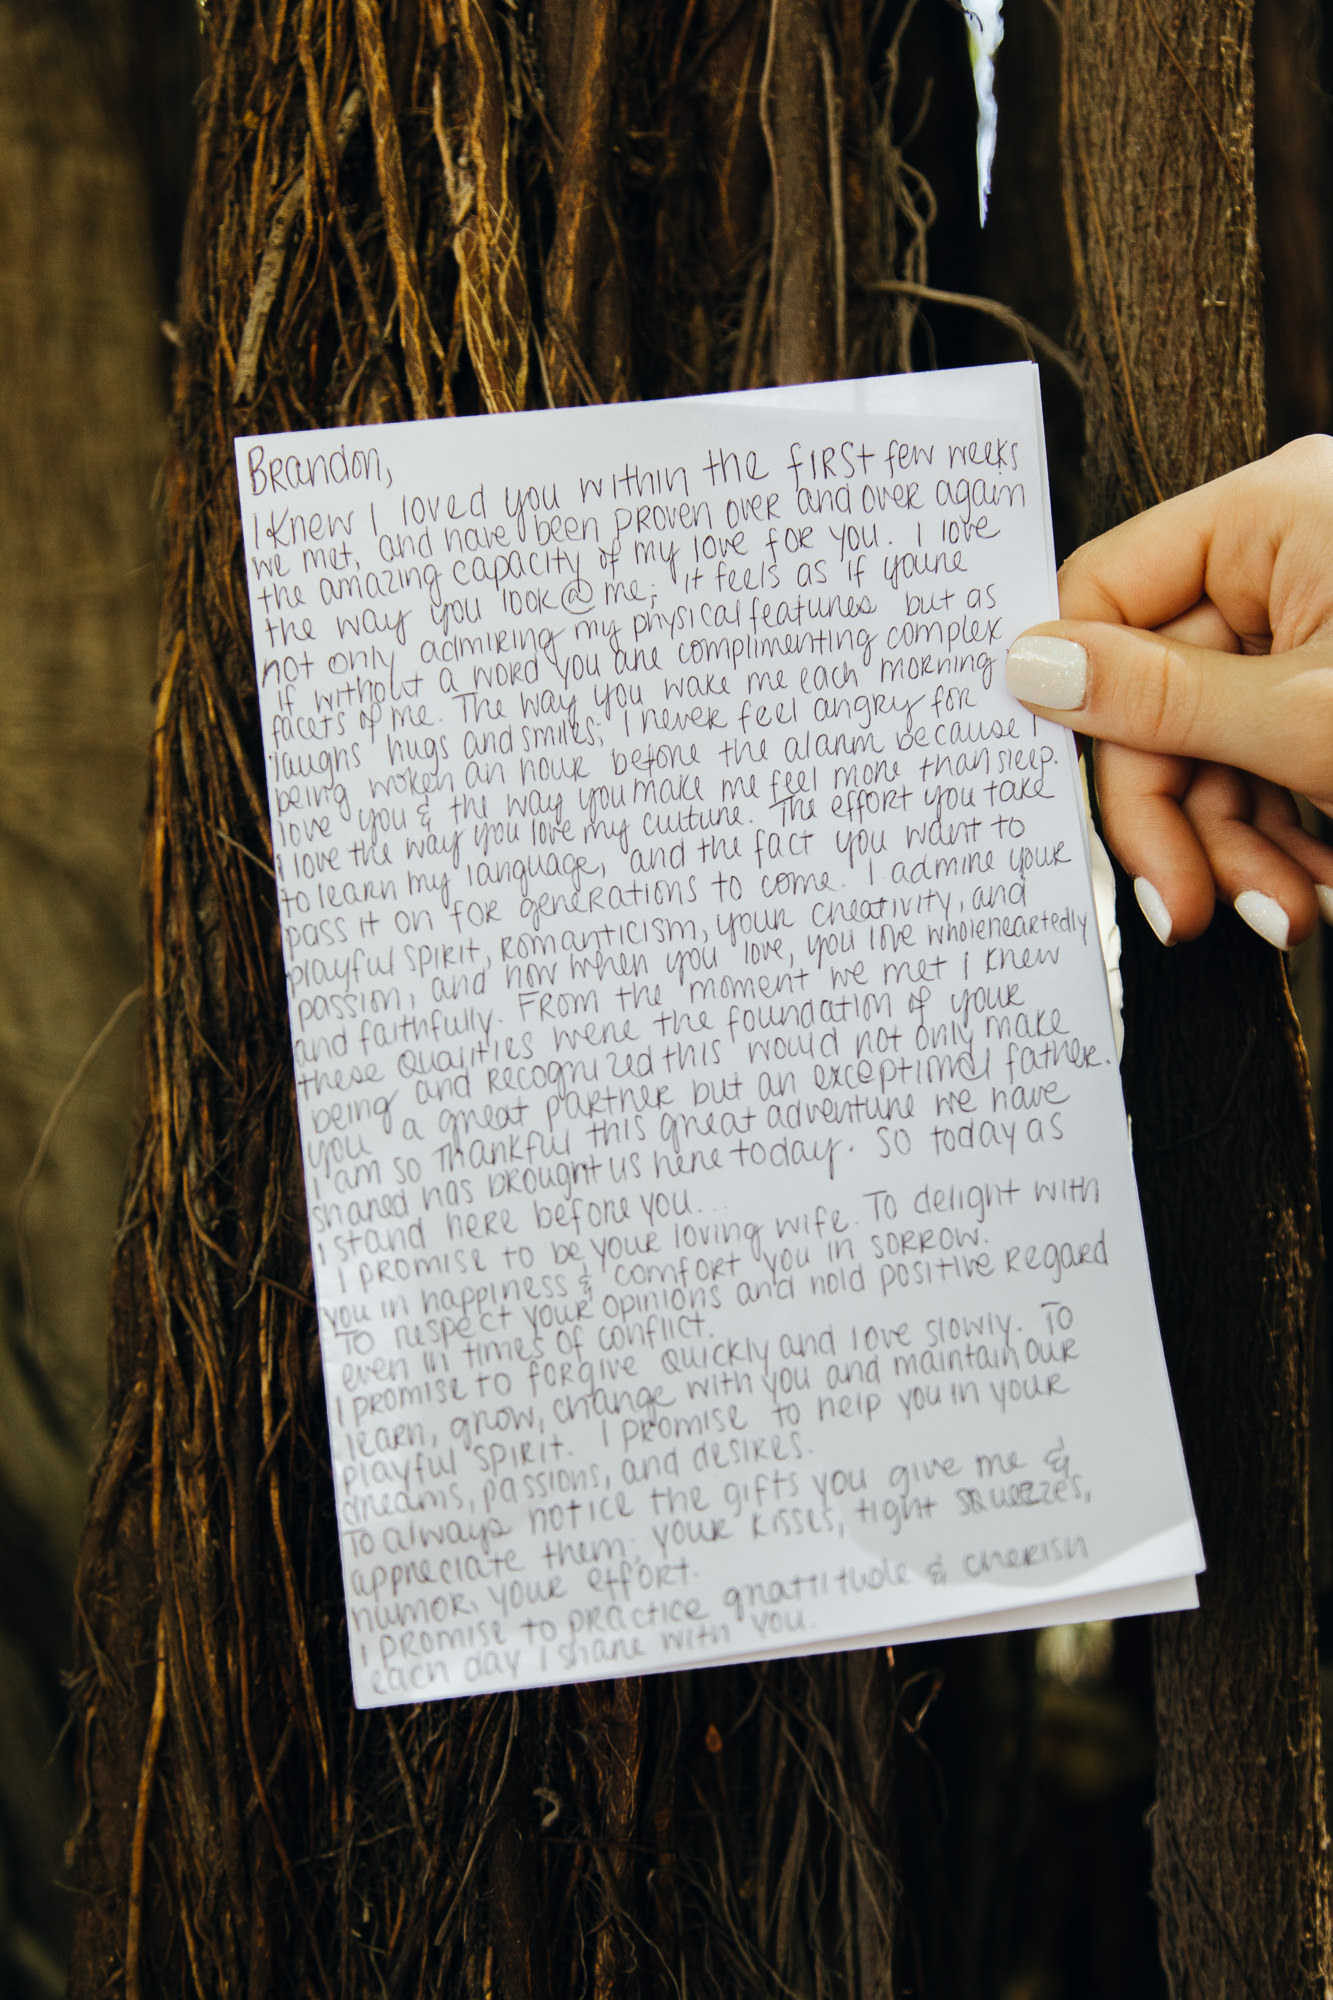 Brandon,
I knew I loved you within the first few weeks
we met, and have been proven over and over again
the amazing capacity of my love for you. I love
the way you look @ me; it feels as if you're
not only admiring my physical features but as
if without a word you are complimenting complex
facets of me. The way you wake me each morning
laughs hugs and smiles; I never feel angry for
being woken an hour before the alarm because I
love you & the way you make me feel more than sleep.
I love the way you love my culture. The effort you take
to learn my language, and the fact you want to
pass it on for generations to come. I admire your
playful spirit, romanticism, your creativity, and
passion, and how when you love, you love wholeheartedly
and faithfully. From the moment we met I knew
these qualities were the foundation of your
being and recognized this would not only make
you a great partner but an exceptional father.
I am so thankful this great adventure we have
shared has brought us here today. So today as
I stand here before you...
I promise to be your loving wife. To delight with
you in happiness & comfort you in sorrow.
To respect your opinions and hold positive regard
even in times of conflict.
I promise to forgive quickly and love slowly. To
learn, grow, change with you and maintain our
playful spirit. I promise to help you in your
dreams, passions, and desires.
To always notice the gifts you give me &
appreciate them; your kisses, tight squezzes,
humor, your effort.
I promise to practice grattitude & cherish
each day I share with you.